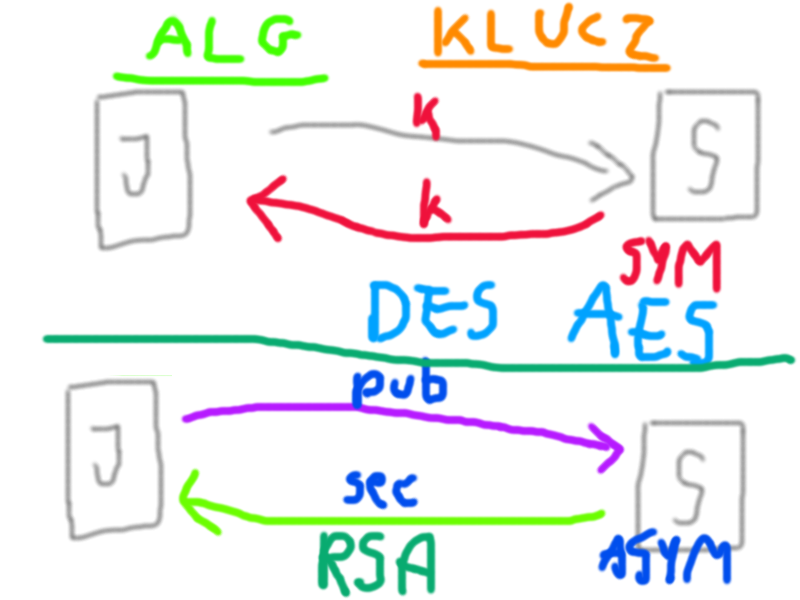 ALG KLUCZ
J k S
k
SYM
DES AES
pub
J S
sec
RSA ASYM